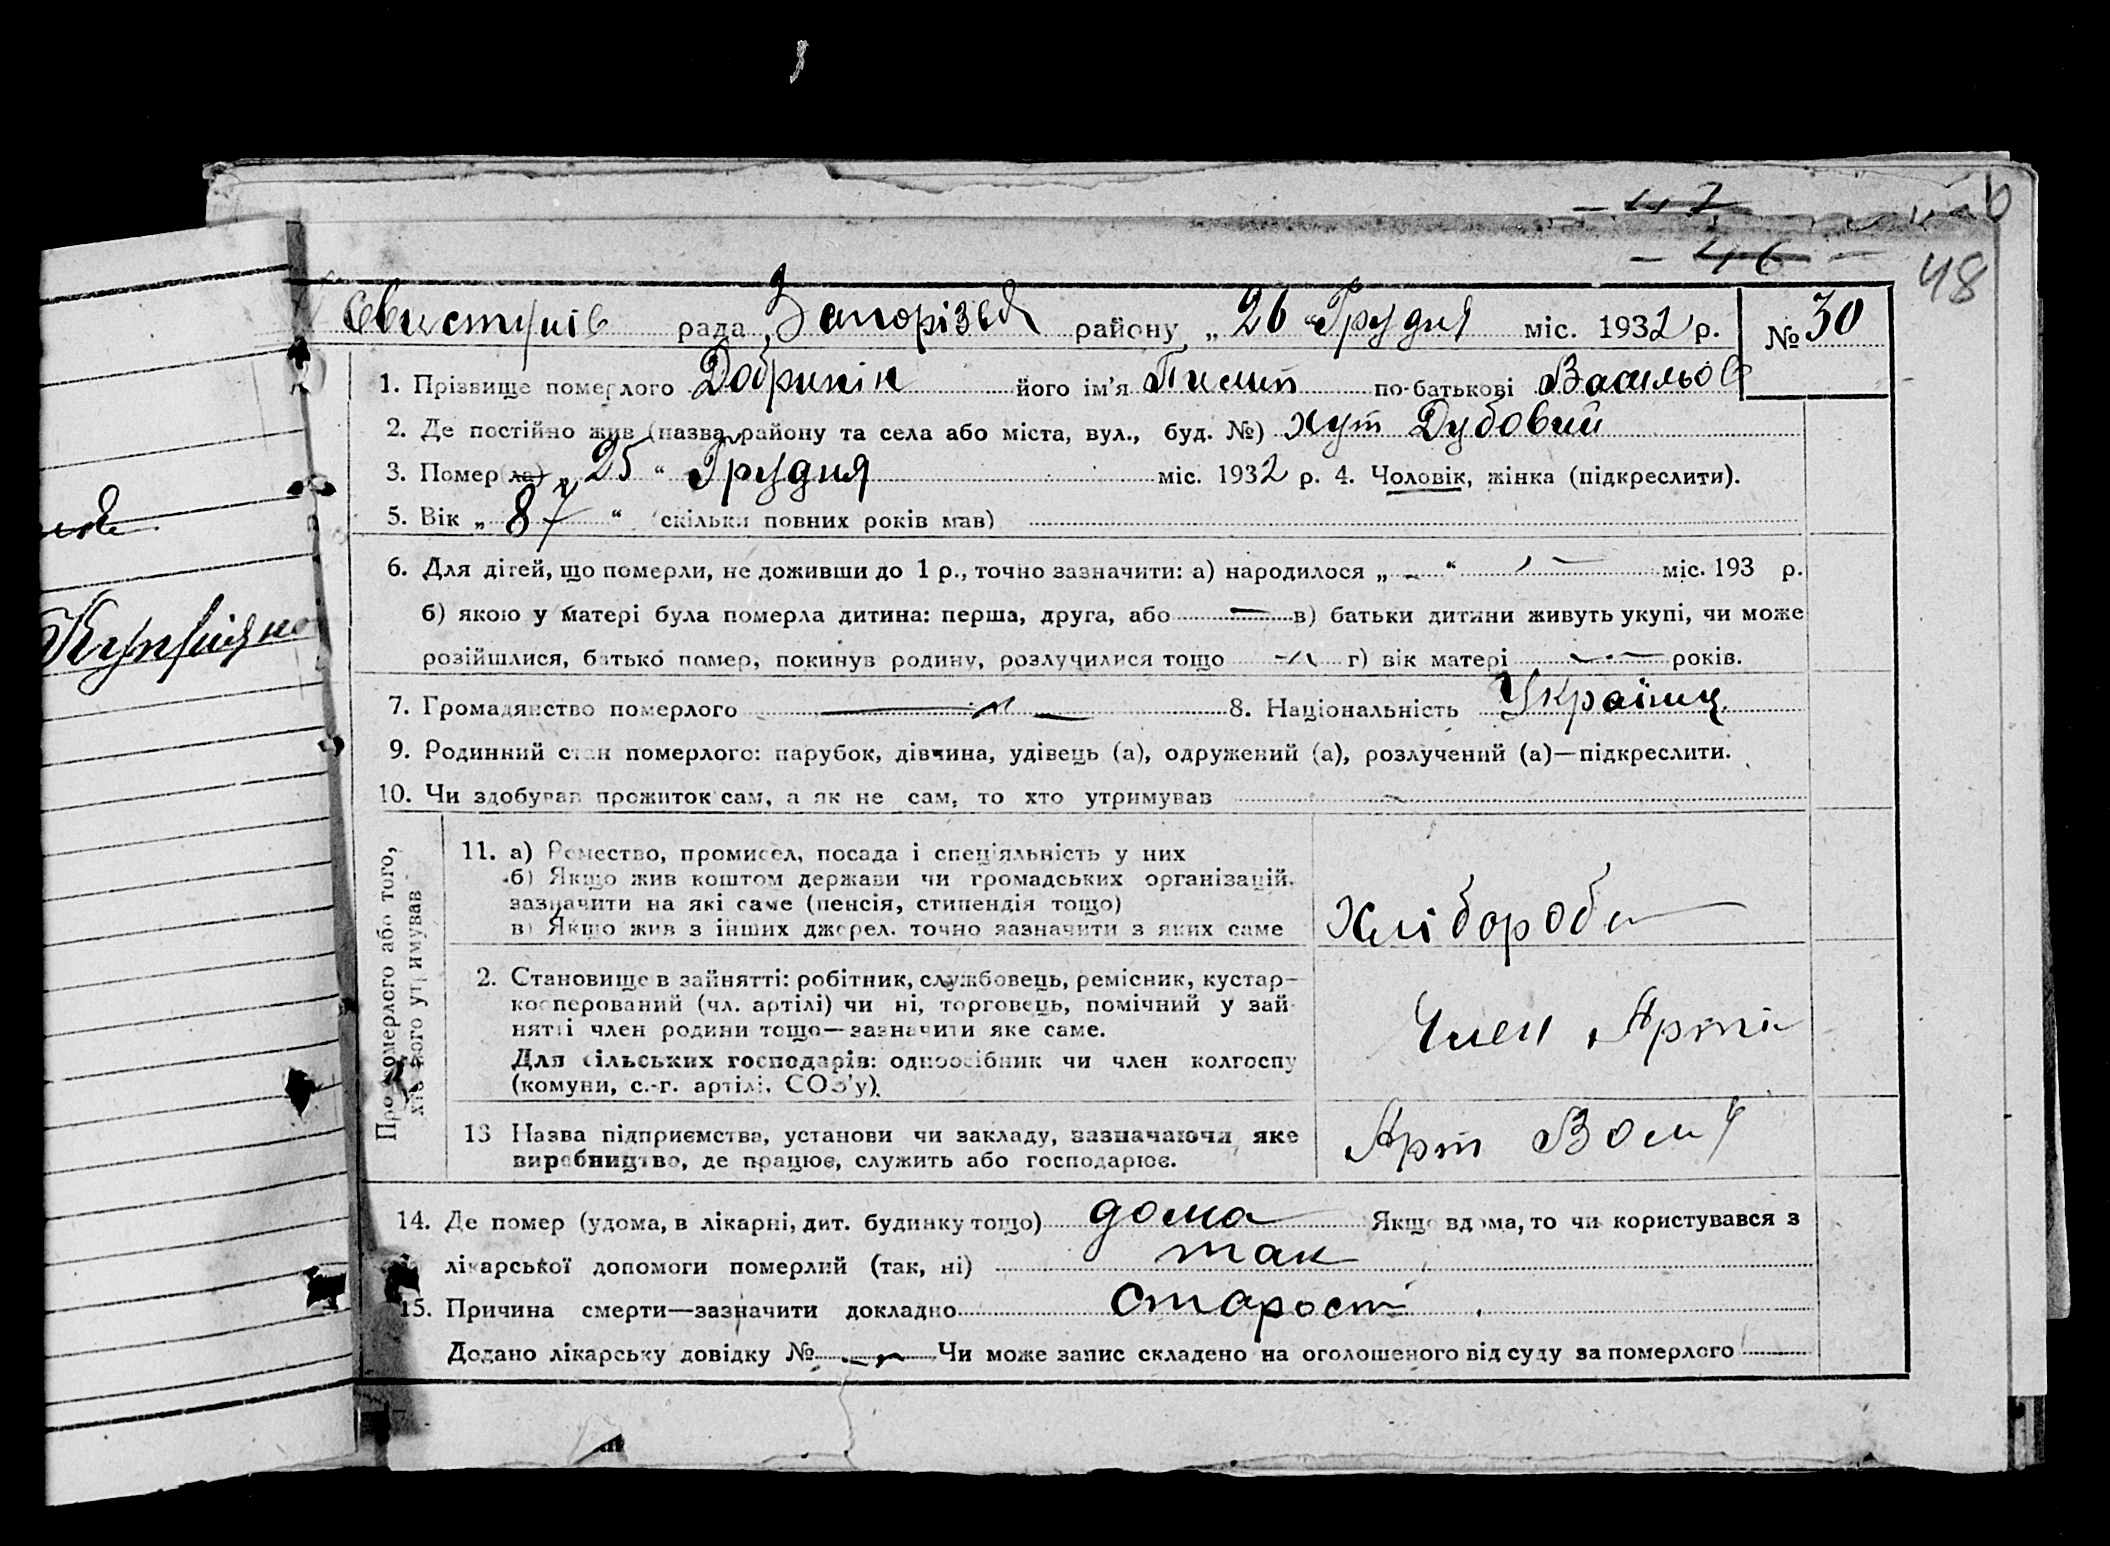 47
46
48
Свистунів рада Запорізьк району „ 26 “ Грудня міс. 1932 р. № 30
1. Прізвище померлого Добринін його ім'я Пилип по-батькові Васильов
2. Де постійно жив (назва району та села або міста, вул., буд. №) хут Дубовий
3. Помер (ла) „ 25 “ Грудня міс. 1932 р. 4. Чоловік, жінка (підкреслити).
5. Вік „ 87 “ (скільки повних років мав)
6. Для дітей, що померли, не доживши до 1 р., точно зазначити: а) народилося „ – “ – міс. 193 р.
б) якою у матері була померла дитина: перша, друга, або — в) батьки дитини живуть укупі, чи може
розійшлися, батько помер, покинув родину, розлучилися тощо — г) вік матері — років.
7. Громадянство померлого — 8. Національність Українц
9. Родинний стан померлого: парубок, дівчина, удівець (а), одружений (а), розлучений (а)—підкреслити.
10. Чи здобував прожиток сам, а як не сам, то хто утримував
Про померлого або того, хто його утримував
11. а) Ремество, промисел, посада і спеціяльність у них
б) Якщо жив коштом держави чи громадських організацій.
зазначити на які саме (пенсія, стипендія тощо)
в) Якщо жив з інших джерел. точно зазначити з яких саме
Хлібороб
2. Становище в зайнятті: робітник, службовець, ремісник, кустар-
кооперований (чл. артілі) чи ні, торговець, помічний у зай-
нятті член родини тощо—зазначити яке саме.
Для сільських господарів: одноосібник чи член колгоспу
(комуни, с.-г. артілі, СОЗ'у).
Член Арті
13 Назва підприємства, установи чи закладу, зазначаючи яке
виробництво, де працює, служить або господарює.
Арт
14. Де помер (удома, в лікарні, дит. будинку тощо) дома Якщо вдома, то чи користувався з
лікарської допомоги померлий (так, ні) так
15. Причина смерти—зазначити докладно старост
Додано лікарську довідку № — Чи може запис складено на оголошеного від суду за померлого